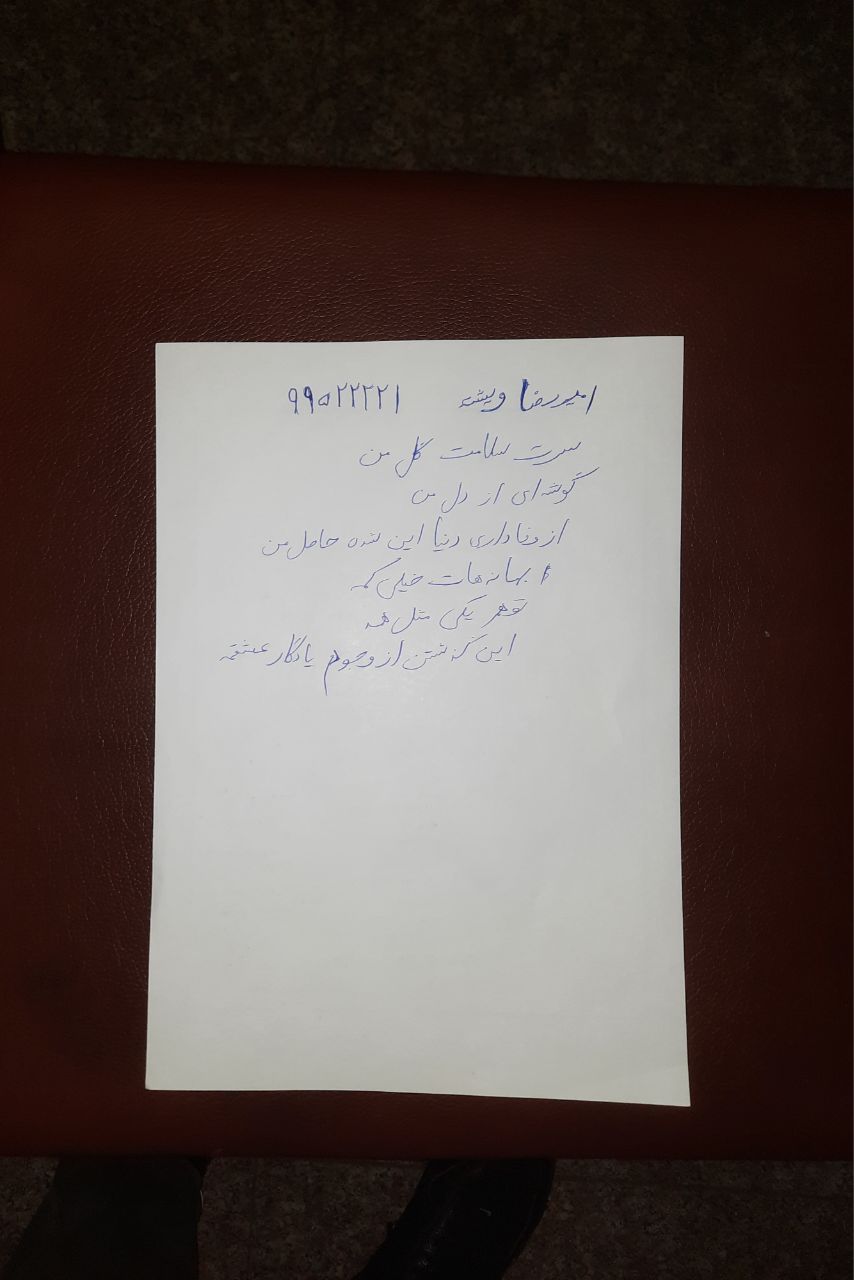 امیررضا ویشته ۹۹۵۲۲۲۲۱
سرت سلامت گل من
گوشه‌ای از دل من
از وفاداری دنیا این شده حاصل من
بهانه‌هات خیلی کمه
تو هم یکی مثل همه
این گذشتن از وجودم یادگار عشقمه